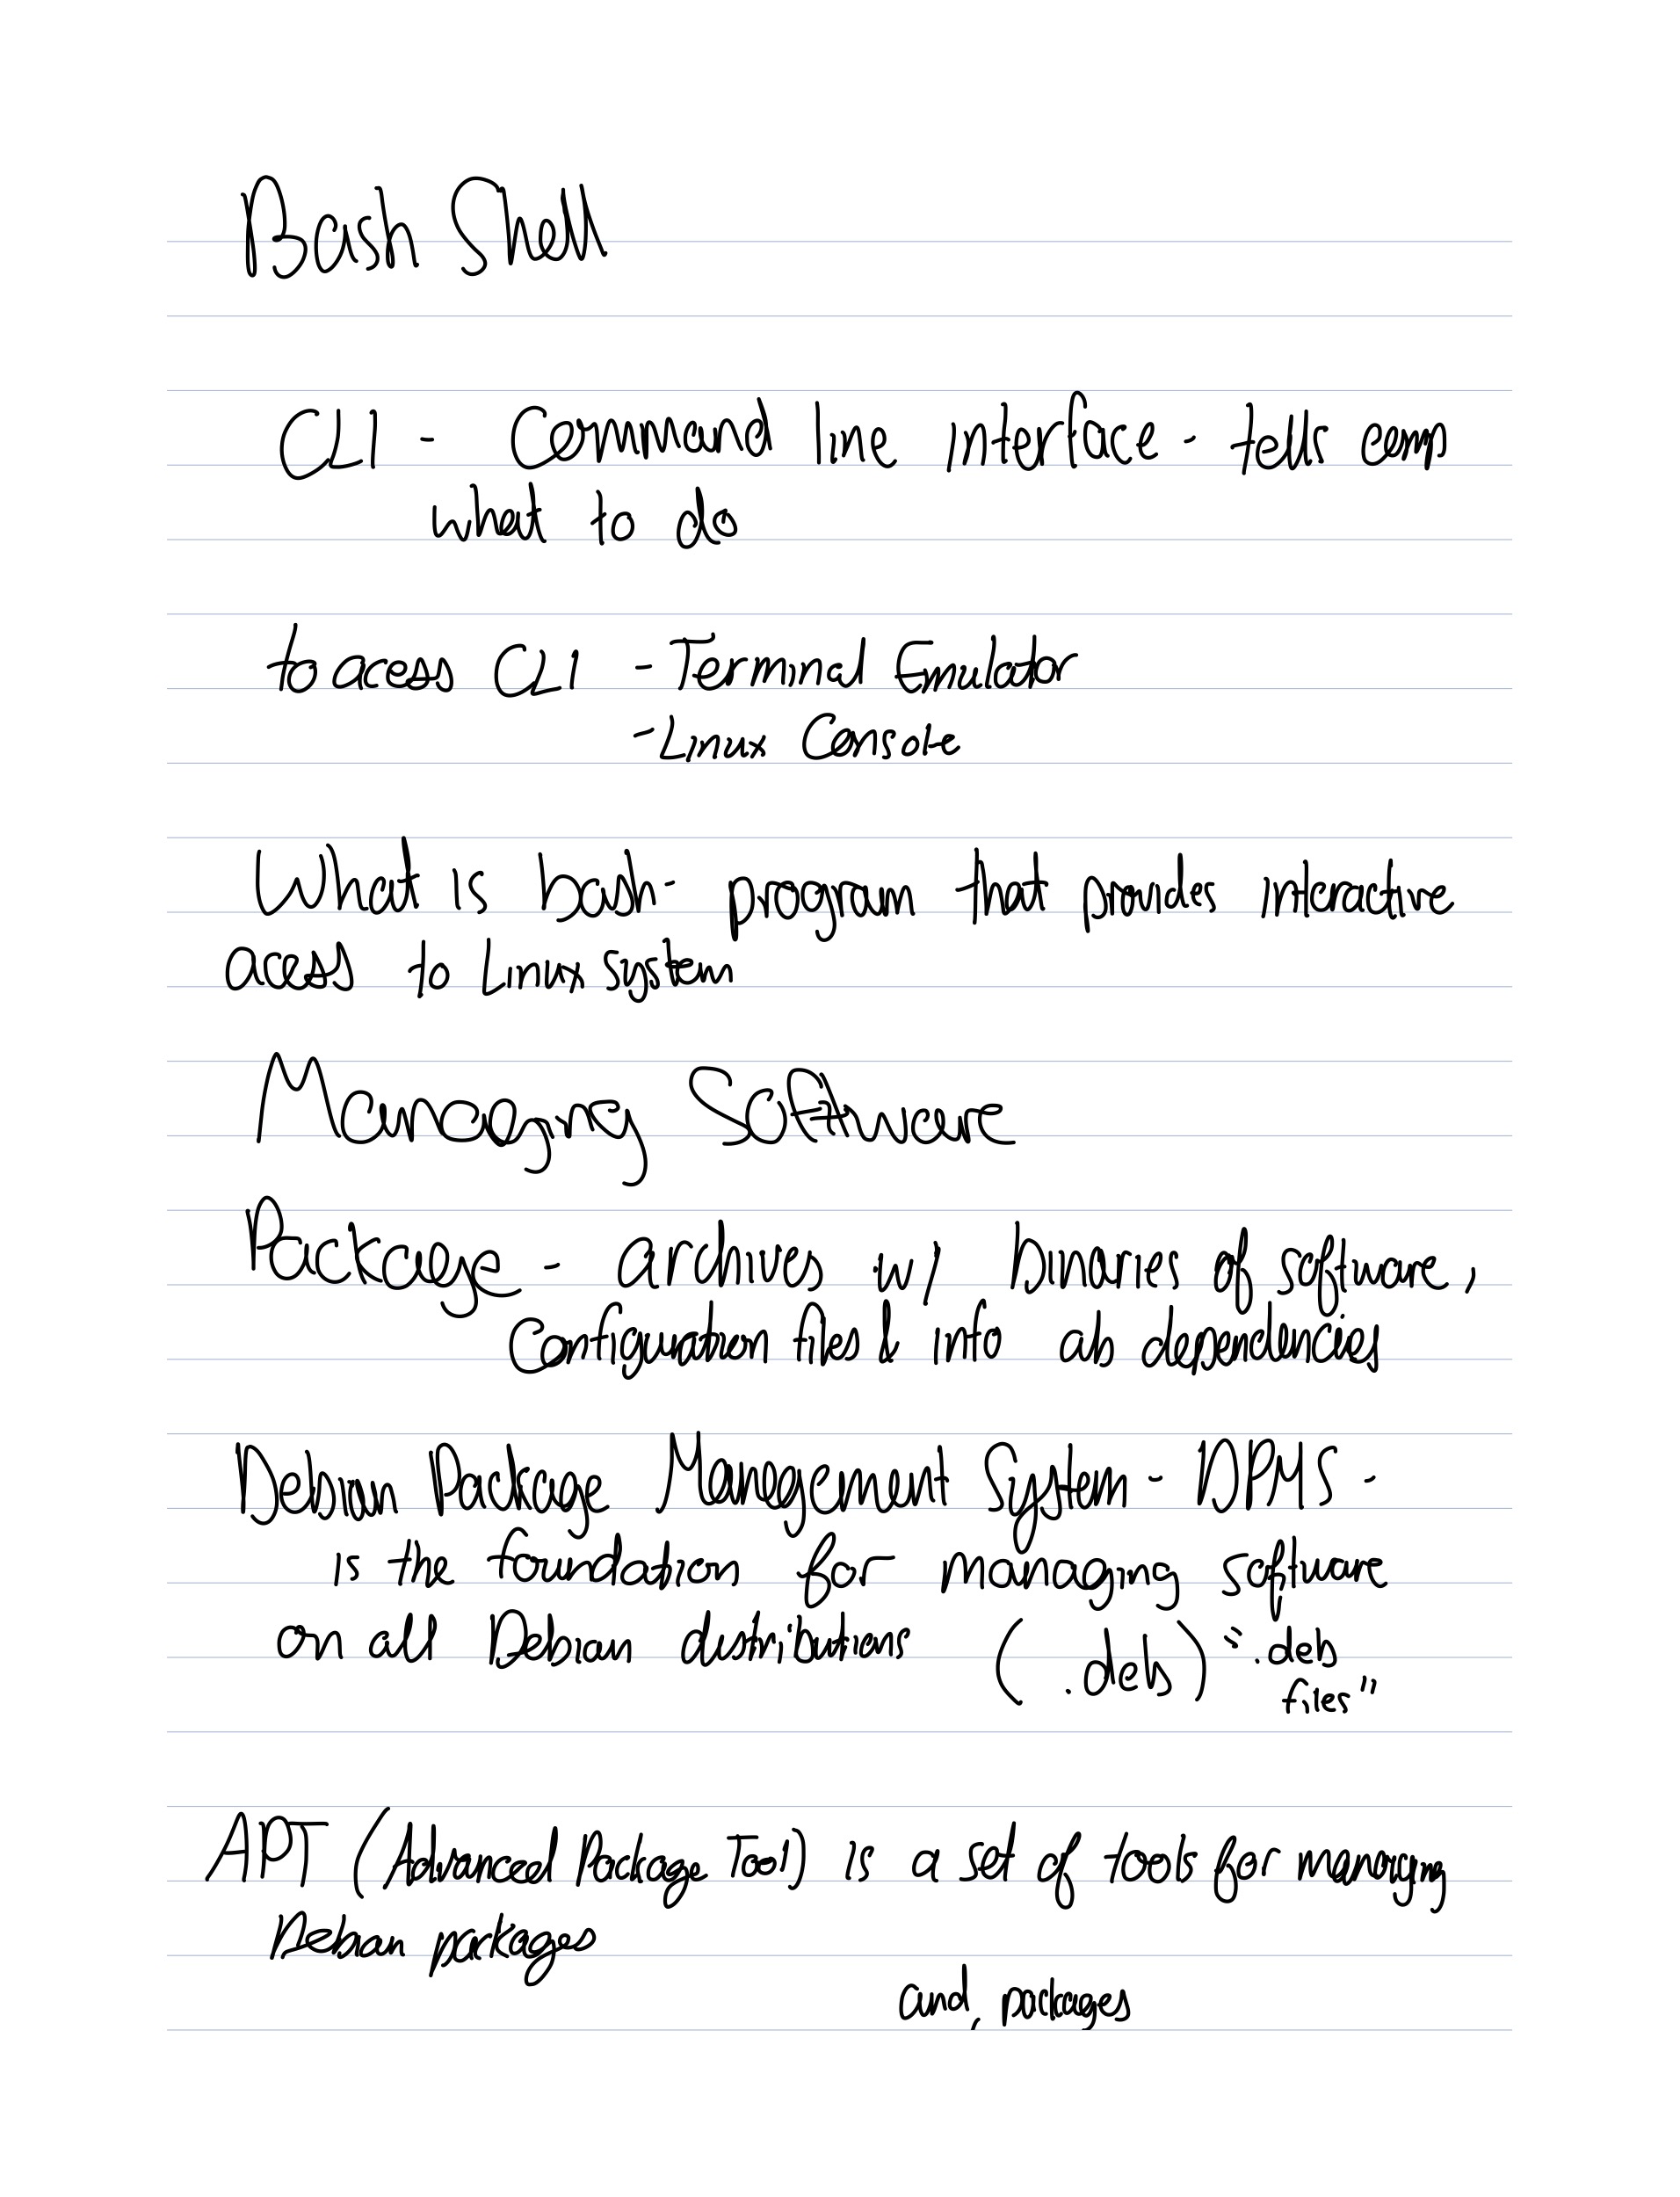 Bash Shell
CLI - Command line interface - tells comp
what to do
to access CLI - Terminal Emulator
- Linux Console
What is bash - program that provides interactive
access to Linux system
Managing Software
Package - archives w/ binaries of software,
configuration files & info ab dependencies
Debian Package Management System - DPMS -
is the foundation for managing software
on all Debian distributions (.deb) ".deb
files"
APT (Advanced Package Tool) is a set of tools for managing
Debian packages
and, packages